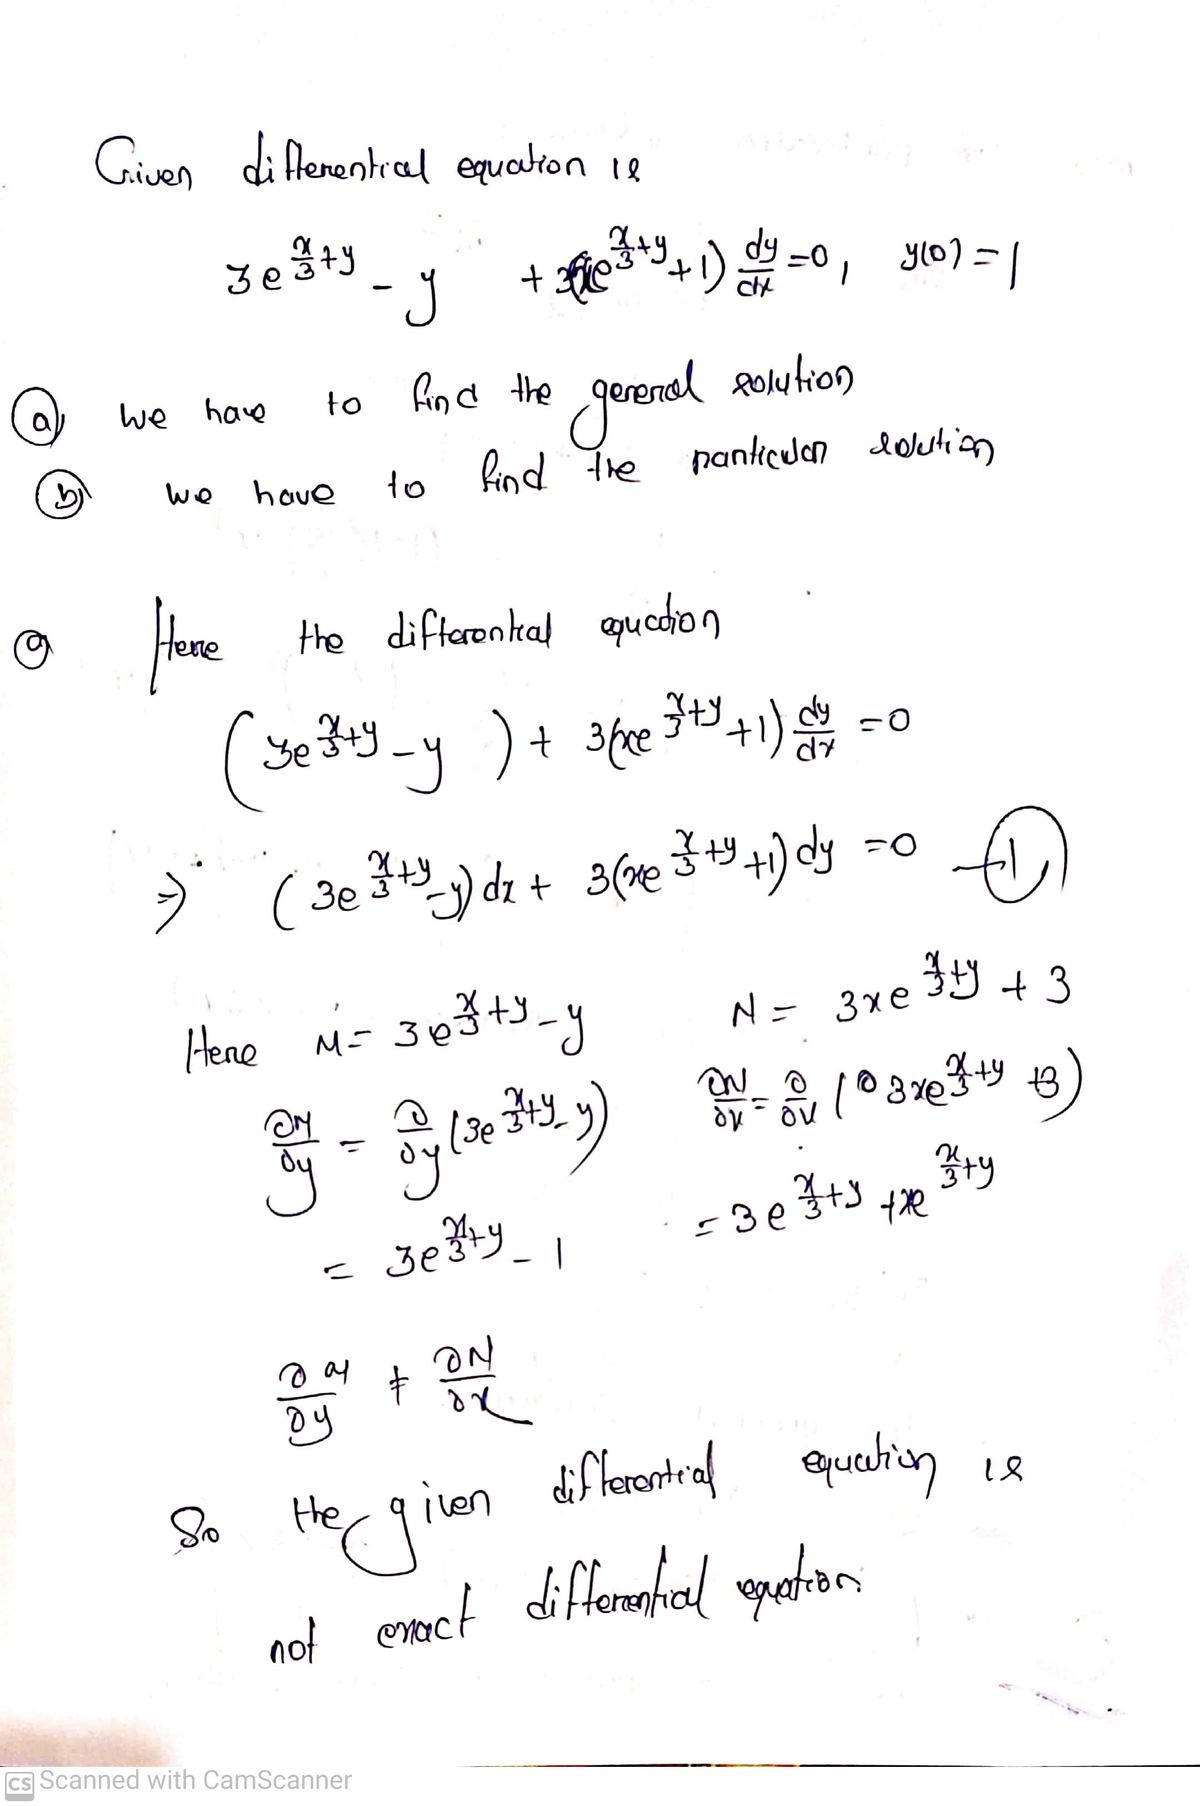 Given differential equation is
3e^{x/3+y} - y + 3(xe^{x/3+y}+1) dy/dx =0, y(0)=1
(a) we have to find the general solution
(b) we have to find the particular solution
(a) Here the differential equation
(3e^{x/3+y} - y) + 3(xe^{x/3+y}+1) dy/dx =0
⇒ (3e^{x/3+y} - y) dx + 3(xe^{x/3+y}+1) dy =0 —(1)
Here M = 3e^{x/3+y} - y N = 3xe^{x/3+y} + 3
∂M/∂y = ∂/∂y (3e^{x/3+y} - y) ∂N/∂x = ∂/∂x (3xe^{x/3+y} +3)
= 3e^{x/3+y} - 1 = 3e^{x/3+y} + xe^{x/3+y}
∂M/∂y ≠ ∂N/∂x
So the given differential equation is
not exact differential equation.
CS Scanned with CamScanner